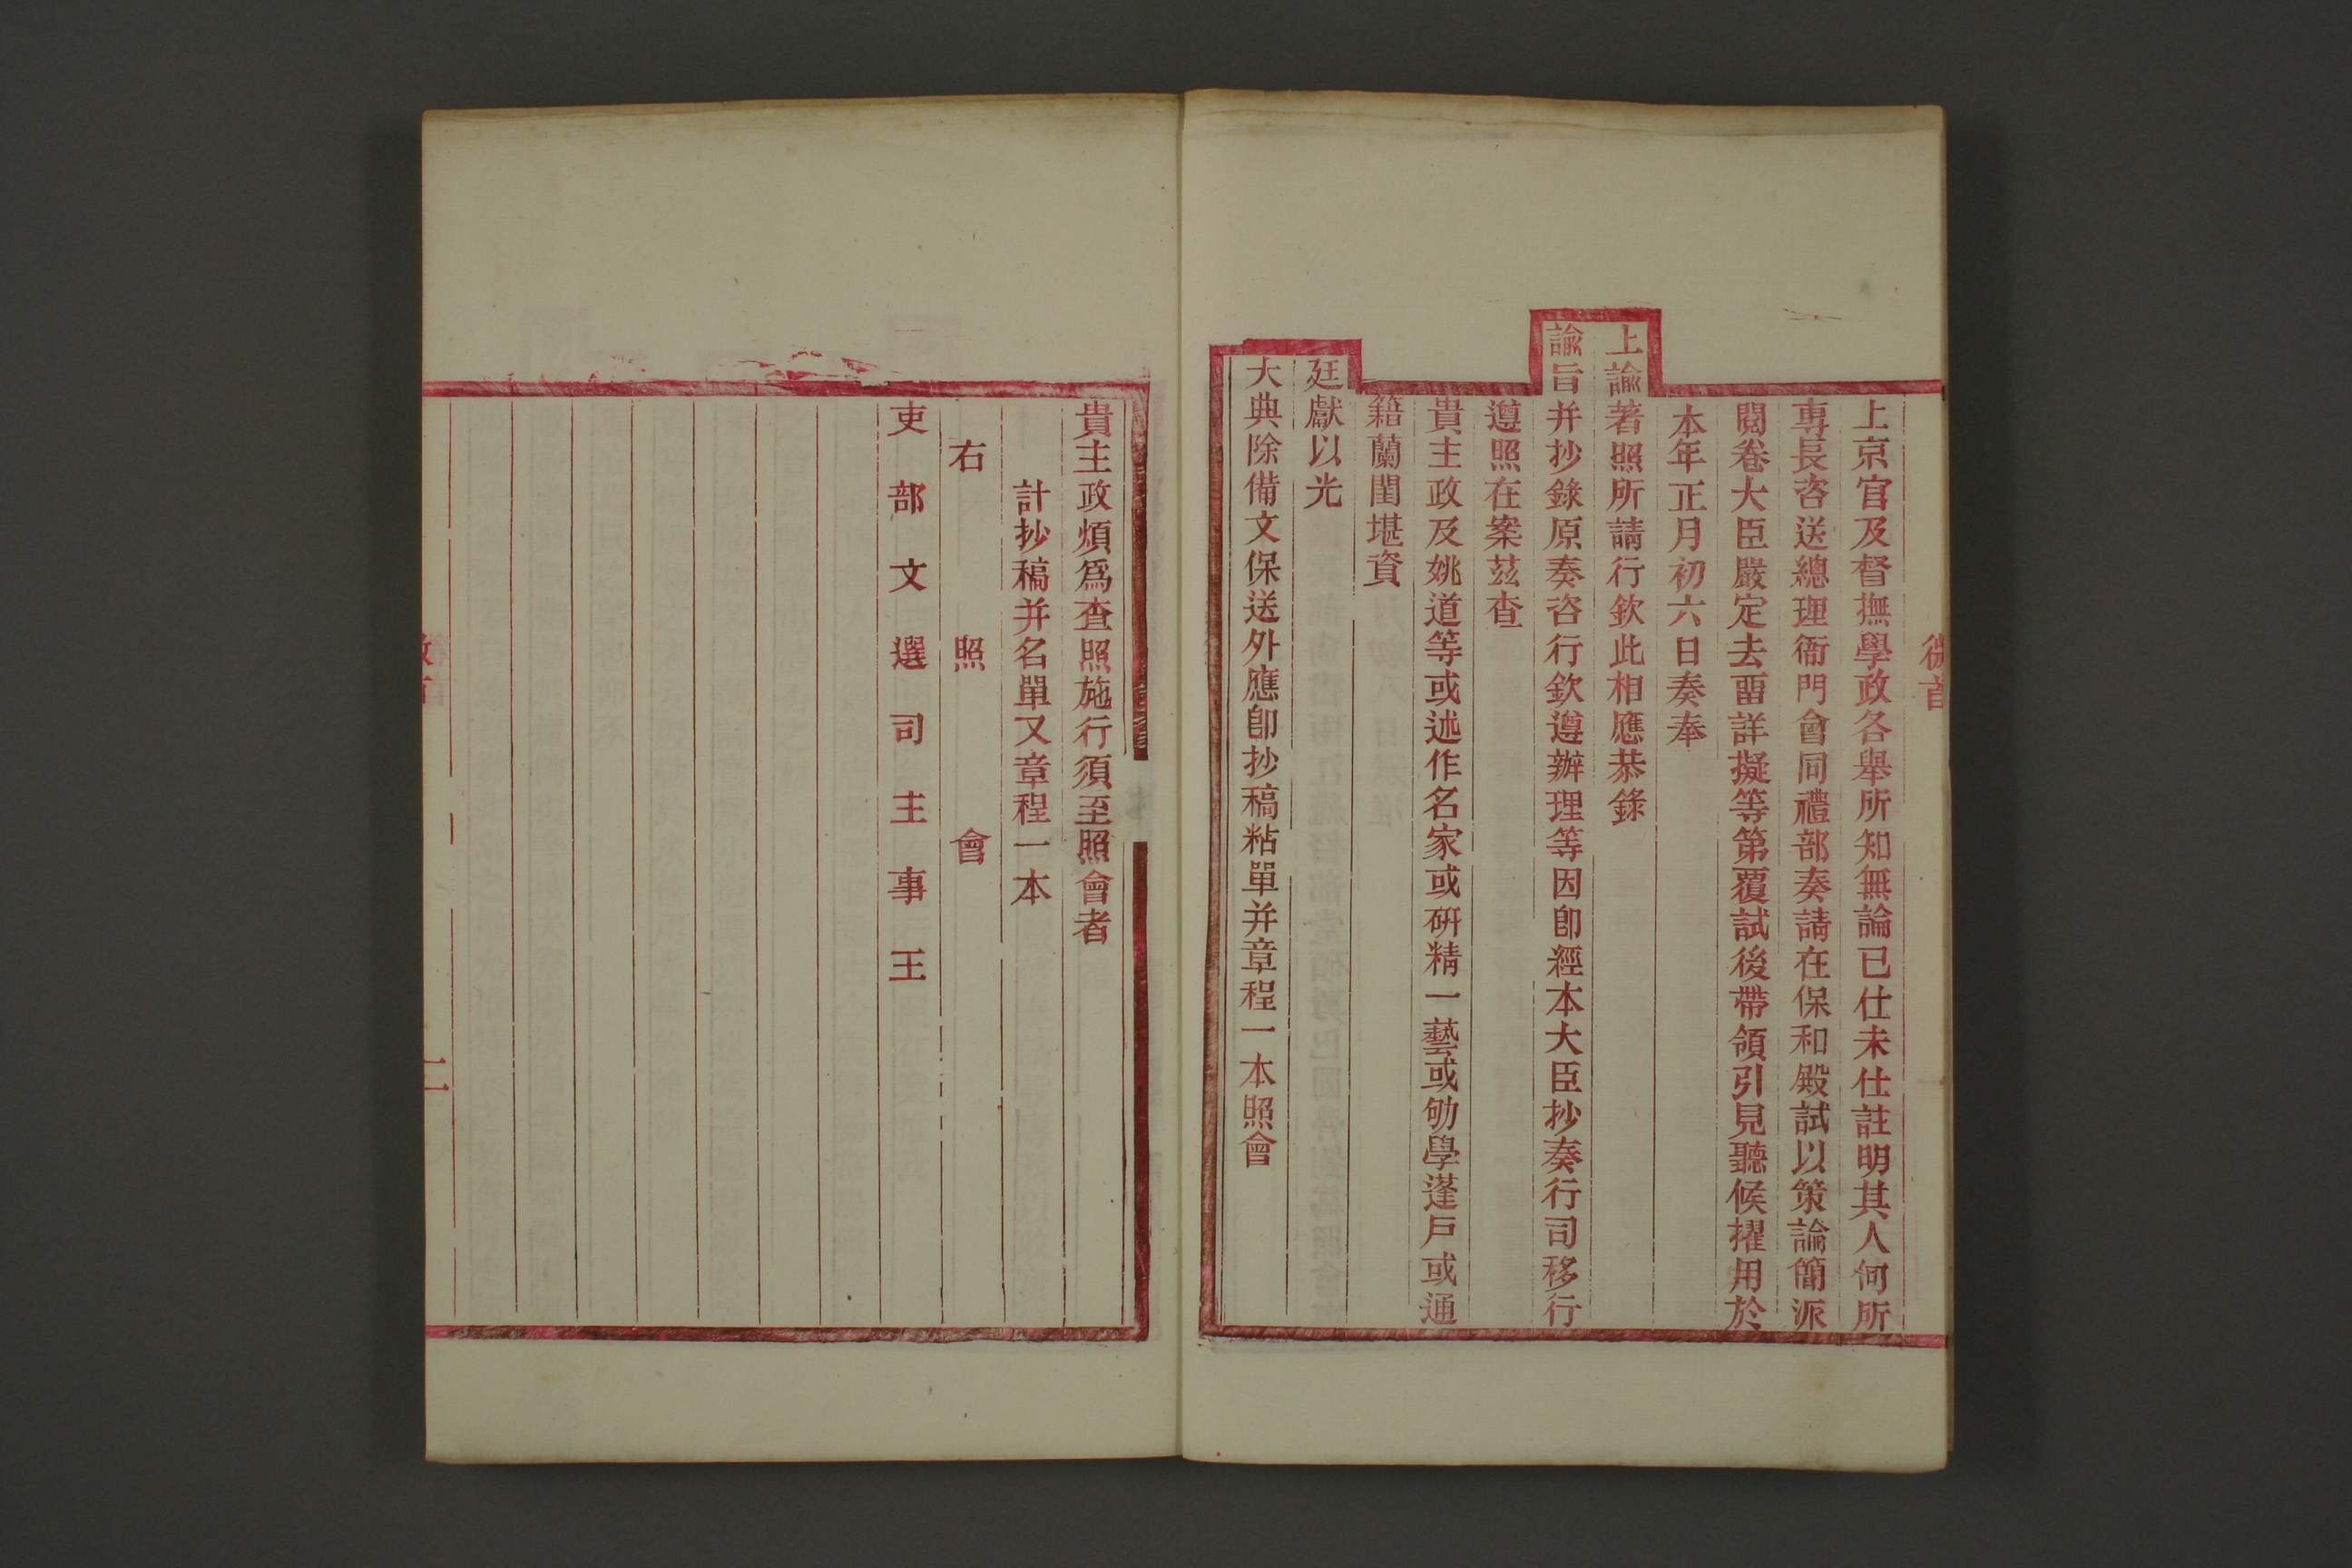 上京官及督撫學政各舉所知無論已仕未仕註明其人何所
專長咨送總理衙門會同禮部奏請在保和殿試以策論簡派
閱卷大臣嚴定去畱詳擬等第覆試後帶領引見聽候擢用於
本年正月初六日奏奉
上諭著照所請行欽此相應恭錄
諭旨并抄錄原奏咨行欽遵辦理等因卽經本大臣抄奏行司移行
遵照在案茲查
貴主政及姚道等或述作名家或硏精一藝或劬學蓬戶或通
籍蘭閨堪資
廷獻以光
大典除備文保送外應卽抄稿粘單并章程一本照會
貴主政煩爲查照施行須至照會者
計抄稿并名單又章程一本
右照會
吏部文選司主事王